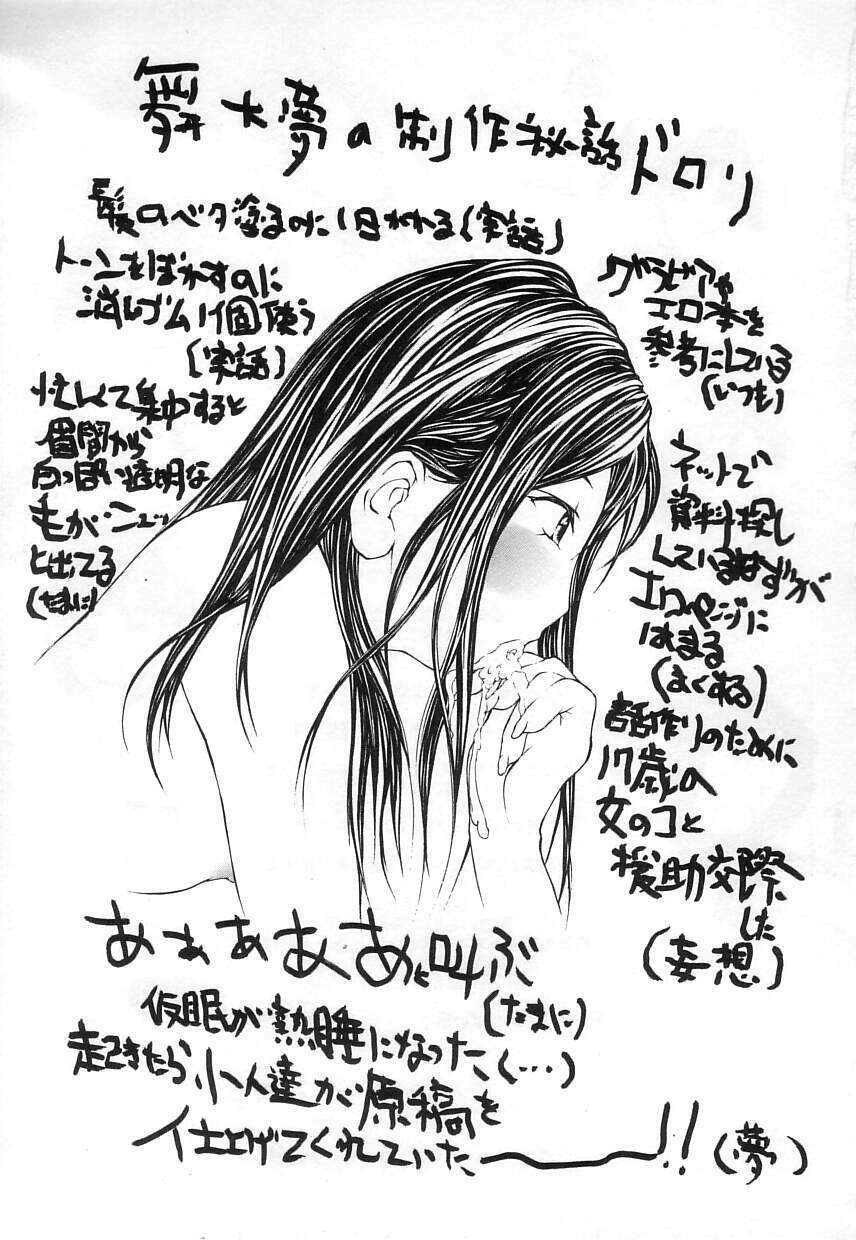 舞大夢の制作秘話ドロリ
髪のベタ塗るのに1日かかる(実話)
トーンをぼかすのに
消しゴム1個使う
(実話)
忙しくて集中すると
眉間から
白っぽい透明な
毛がニュッ
と出てる
(たまに)
グラビアや
エロ本を
参考にしている
(いつも)
ネットで
資料探し
しているはずが
エロページに
はまる
(よくある)
話作りのために
17歳の
女のコと
援助交際
した
(妄想)
あぁぁぁぁと叫ぶ
(たまに)
仮眠が熟睡になった、(…)
起きたら小人達が原稿を
仕上げてくれていたーーー!!(夢)